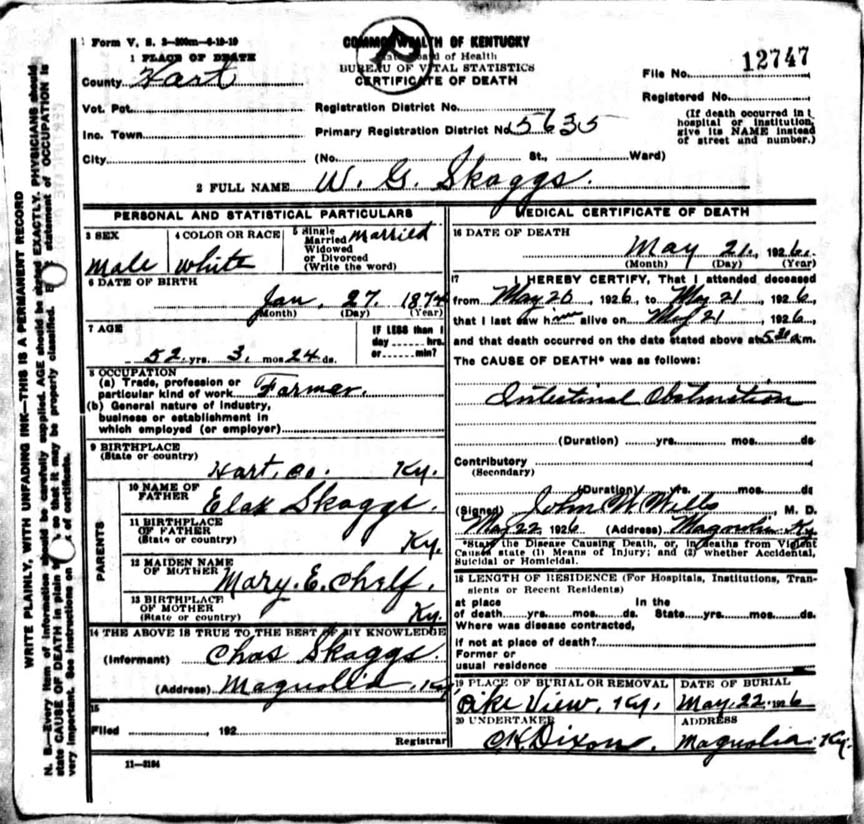 Form V. S. 2—200m—6-19-19
COMMONWEALTH OF KENTUCKY
State Board of Health
BUREAU OF VITAL STATISTICS
CERTIFICATE OF DEATH
File No. 12747
Registered No.
(If death occurred in
hospital or institution,
give its NAME instead
of street and number.)
1 PLACE OF DEATH
County Hart
Vot. Pct.
Inc. Town
City
Registration District No.
Primary Registration District No. 5635
(No. St., Ward)
2 FULL NAME W. G. Skaggs.
PERSONAL AND STATISTICAL PARTICULARS
3 SEX
Male
4 COLOR OR RACE
White
5 Single
Married
Widowed
or Divorced
(Write the word)
Married
6 DATE OF BIRTH
Jan. 27 1874
(Month) (Day) (Year)
7 AGE
52 yrs. 3 mos. 24 ds.
IF LESS than 1
day hrs.
or min?
8 OCCUPATION
(a) Trade, profession or
particular kind of work Farmer.
(b) General nature of industry,
business or establishment in
which employed (or employer)
9 BIRTHPLACE
(State or country)
Hart, co. Ky.
PARENTS
10 NAME OF
FATHER
Skaggs.
11 BIRTHPLACE
OF FATHER
(State or country)
Ky.
12 MAIDEN NAME
OF MOTHER
Mary. E. Chelf.
13 BIRTHPLACE
OF MOTHER
(State or country)
Ky.
14 THE ABOVE IS TRUE TO THE BEST OF MY KNOWLEDGE
(Informant) Chas Skaggs.
(Address) Magnolia, Ky
15
Filed , 192
Registrar
11—3184
MEDICAL CERTIFICATE OF DEATH
16 DATE OF DEATH
May 21, 1926.
(Month) (Day) (Year)
17 I HEREBY CERTIFY, That I attended deceased
from May 20, 1926, to May 21, 1926,
that I last saw him alive on May 21, 1926,
and that death occurred on the date stated above at 5 30 a.m.
The CAUSE OF DEATH* was as follows:
Intestinal Obstruction
(Duration) yrs. mos. ds
Contributory
(Secondary)
(Duration) yrs. mos. ds
(Signed) John W Mills, M. D.
May 22 1926 (Address) Magnolia Ky.
*State the Disease Causing Death, or, in deaths from Violent
Causes state (1) Means of Injury; and (2) whether Accidental,
Suicidal or Homicidal.
18 LENGTH OF RESIDENCE (For Hospitals, Institutions, Tran-
sients or Recent Residents)
at place In the
of death yrs. mos. ds. State yrs. mos. ds
Where was disease contracted,
If not at place of death?
Former or
usual residence
19 PLACE OF BURIAL OR REMOVAL
Pike View, Ky.
DATE OF BURIAL
May 22 1926
20 UNDERTAKER
C.K. Dixon.
ADDRESS
Magnolia Ky.
WRITE PLAINLY, WITH UNFADING INK—THIS IS A PERMANENT RECORD
N. B.—Every item of information should be carefully supplied. AGE should be stated EXACTLY. PHYSICIANS should
state CAUSE OF DEATH in plain so that it may be properly classified. statement of OCCUPATION is
very important. See instructions on of certificate.